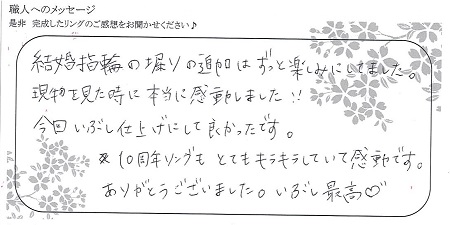 職人へのメッセージ
是非 完成したリングのご感想をお聞かせください♪
結婚指輪の堀りの追加はずっと楽しみにしてました。
現物を見た時に本当に感動しました!!
今回いぶし仕上げにして良かったです。
※10周年リングもとてもキラキラしていて感動です。
ありがとうございました。いぶし最高♡